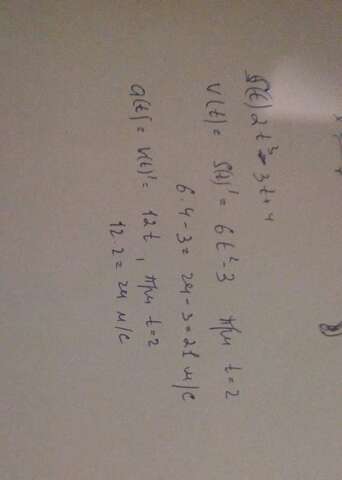 S(t) 2t³ - 3t + 4
V(t) = S(t)' = 6t² - 3 при t = 2
6·4 - 3 = 24 - 3 = 21 м/с
a(t) = V(t)' = 12t, при t = 2
12·2 = 24 м/с